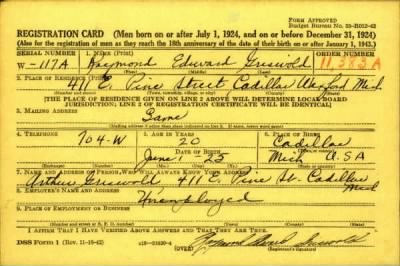 FORM APPROVED
Budget Bureau No. 33-R012-42
REGISTRATION CARD (Men born on or after July 1, 1924, and on or before December 31, 1924)
(Also for the registration of men as they reach the 18th anniversary of the date of their birth on or after January 1, 1943.)
SERIAL NUMBER 1. NAME (Print) ORDER NUMBER
W-117A Raymond Edward Griswold 11,383A
(First) (Middle) (Last)
2. PLACE OF RESIDENCE (Print)
411 E. Pine Street Cadillac Wexford Mich
(Number and street) (Town, township, village, or city) (County) (State)
[THE PLACE OF RESIDENCE GIVEN ON LINE 2 ABOVE WILL DETERMINE LOCAL BOARD
JURISDICTION; LINE 2 OF REGISTRATION CERTIFICATE WILL BE IDENTICAL]
3. MAILING ADDRESS
Same
[Mailing address if other than place indicated on line 2. If same, insert word same]
4. TELEPHONE 5. AGE IN YEARS 6. PLACE OF BIRTH
704-W 20 Cadillac
DATE OF BIRTH
June 1 25 Mich USA
7. NAME AND ADDRESS OF PERSON WHO WILL ALWAYS KNOW YOUR ADDRESS
Arthur Griswold 411 E. Pine St- Cadillac Mich
8. EMPLOYER'S NAME AND ADDRESS
Unemployed
9. PLACE OF EMPLOYMENT OR BUSINESS
(Number and street or R. F. D. number) (Town) (County) (State)
I AFFIRM THAT I HAVE VERIFIED ABOVE ANSWERS AND THAT THEY ARE TRUE.
DSS Form 1 (Rev. 11-16-42) (OVER) Griswold
(Registrant's signature)